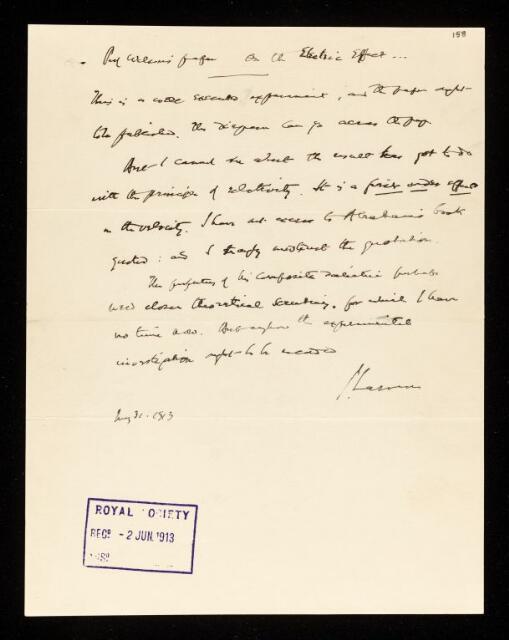 158
Prof Wilson's paper On the Electric Effect ...
This is a well executed experiment, and the paper ought
to be published. The diagram can go across the page.
But I cannot see what the result has got to do
with the principle of relativity. It is a first order effect
in the velocity. I have not access to Abraham's book
quoted: and I the quotation.
The properties of his composite dielectric perhaps
need closer theoretical scrutiny, for which I have
no time now. But anyhow the experimental
investigation ought to be recorded
J Larmor
May 31. 1913
ROYAL SOCIETY
RECD - 2 JUN. 1913